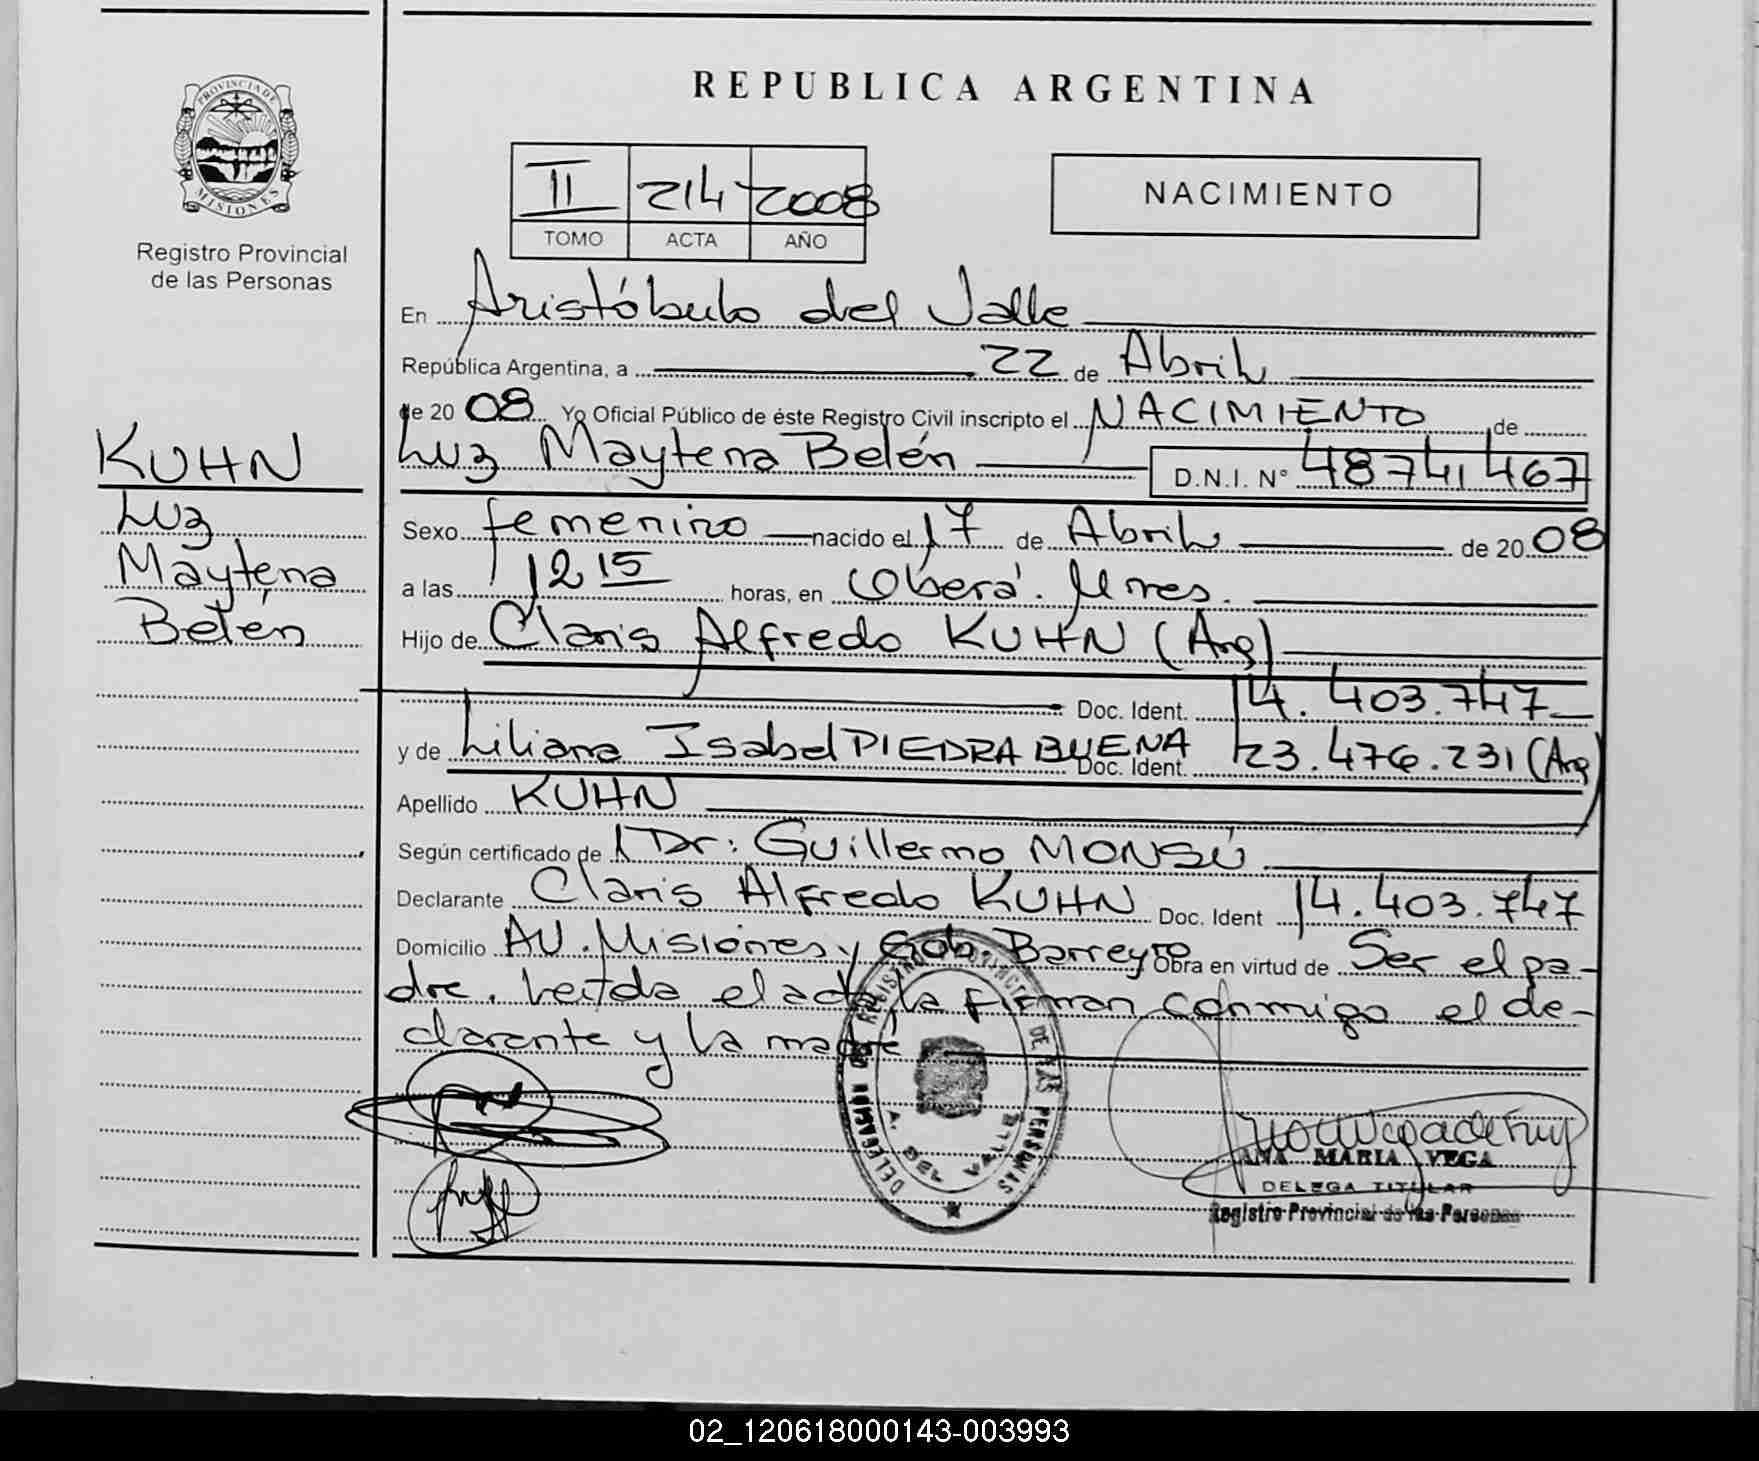 PROVINCIA DE
MISIONES
Registro Provincial
de las Personas
REPUBLICA ARGENTINA
II 214 2008
TOMO ACTA AÑO
NACIMIENTO
En Aristóbulo del Valle
República Argentina, a 22 de Abril
de 20 08 Yo Oficial Público de éste Registro Civil inscripto el NACIMIENTO de
Luz Maytena Belén D.N.I. N° 48741467
KUHN
Luz
Maytena
Belén
Sexo femenino nacido el 17 de Abril de 20 08
a las 12 15 horas, en Oberá. Mnes.
Hijo de Claris Alfredo KUHN (Arg)
Doc. Ident. 14.403.747
y de Liliana Isabel PIEDRA BUENA Doc. Ident. 23.476.231 (Arg)
Apellido KUHN
Según certificado de Dr: Guillermo MONSÚ
Declarante Claris Alfredo KUHN Doc. Ident 14.403.747
Domicilio AV. Misiones y Gob. Barreyro Obra en virtud de Ser el pa-
dre. Leída el acta, la firman conmigo el de-
clarante y la madre
DELEGACION DE REGISTRO PROVINCIAL DE LAS PERSONAS
A. DEL VALLE
ANA MARIA VEGA
DELEGA TITULAR
Registro Provincial de las Personas
02_120618000143-003993